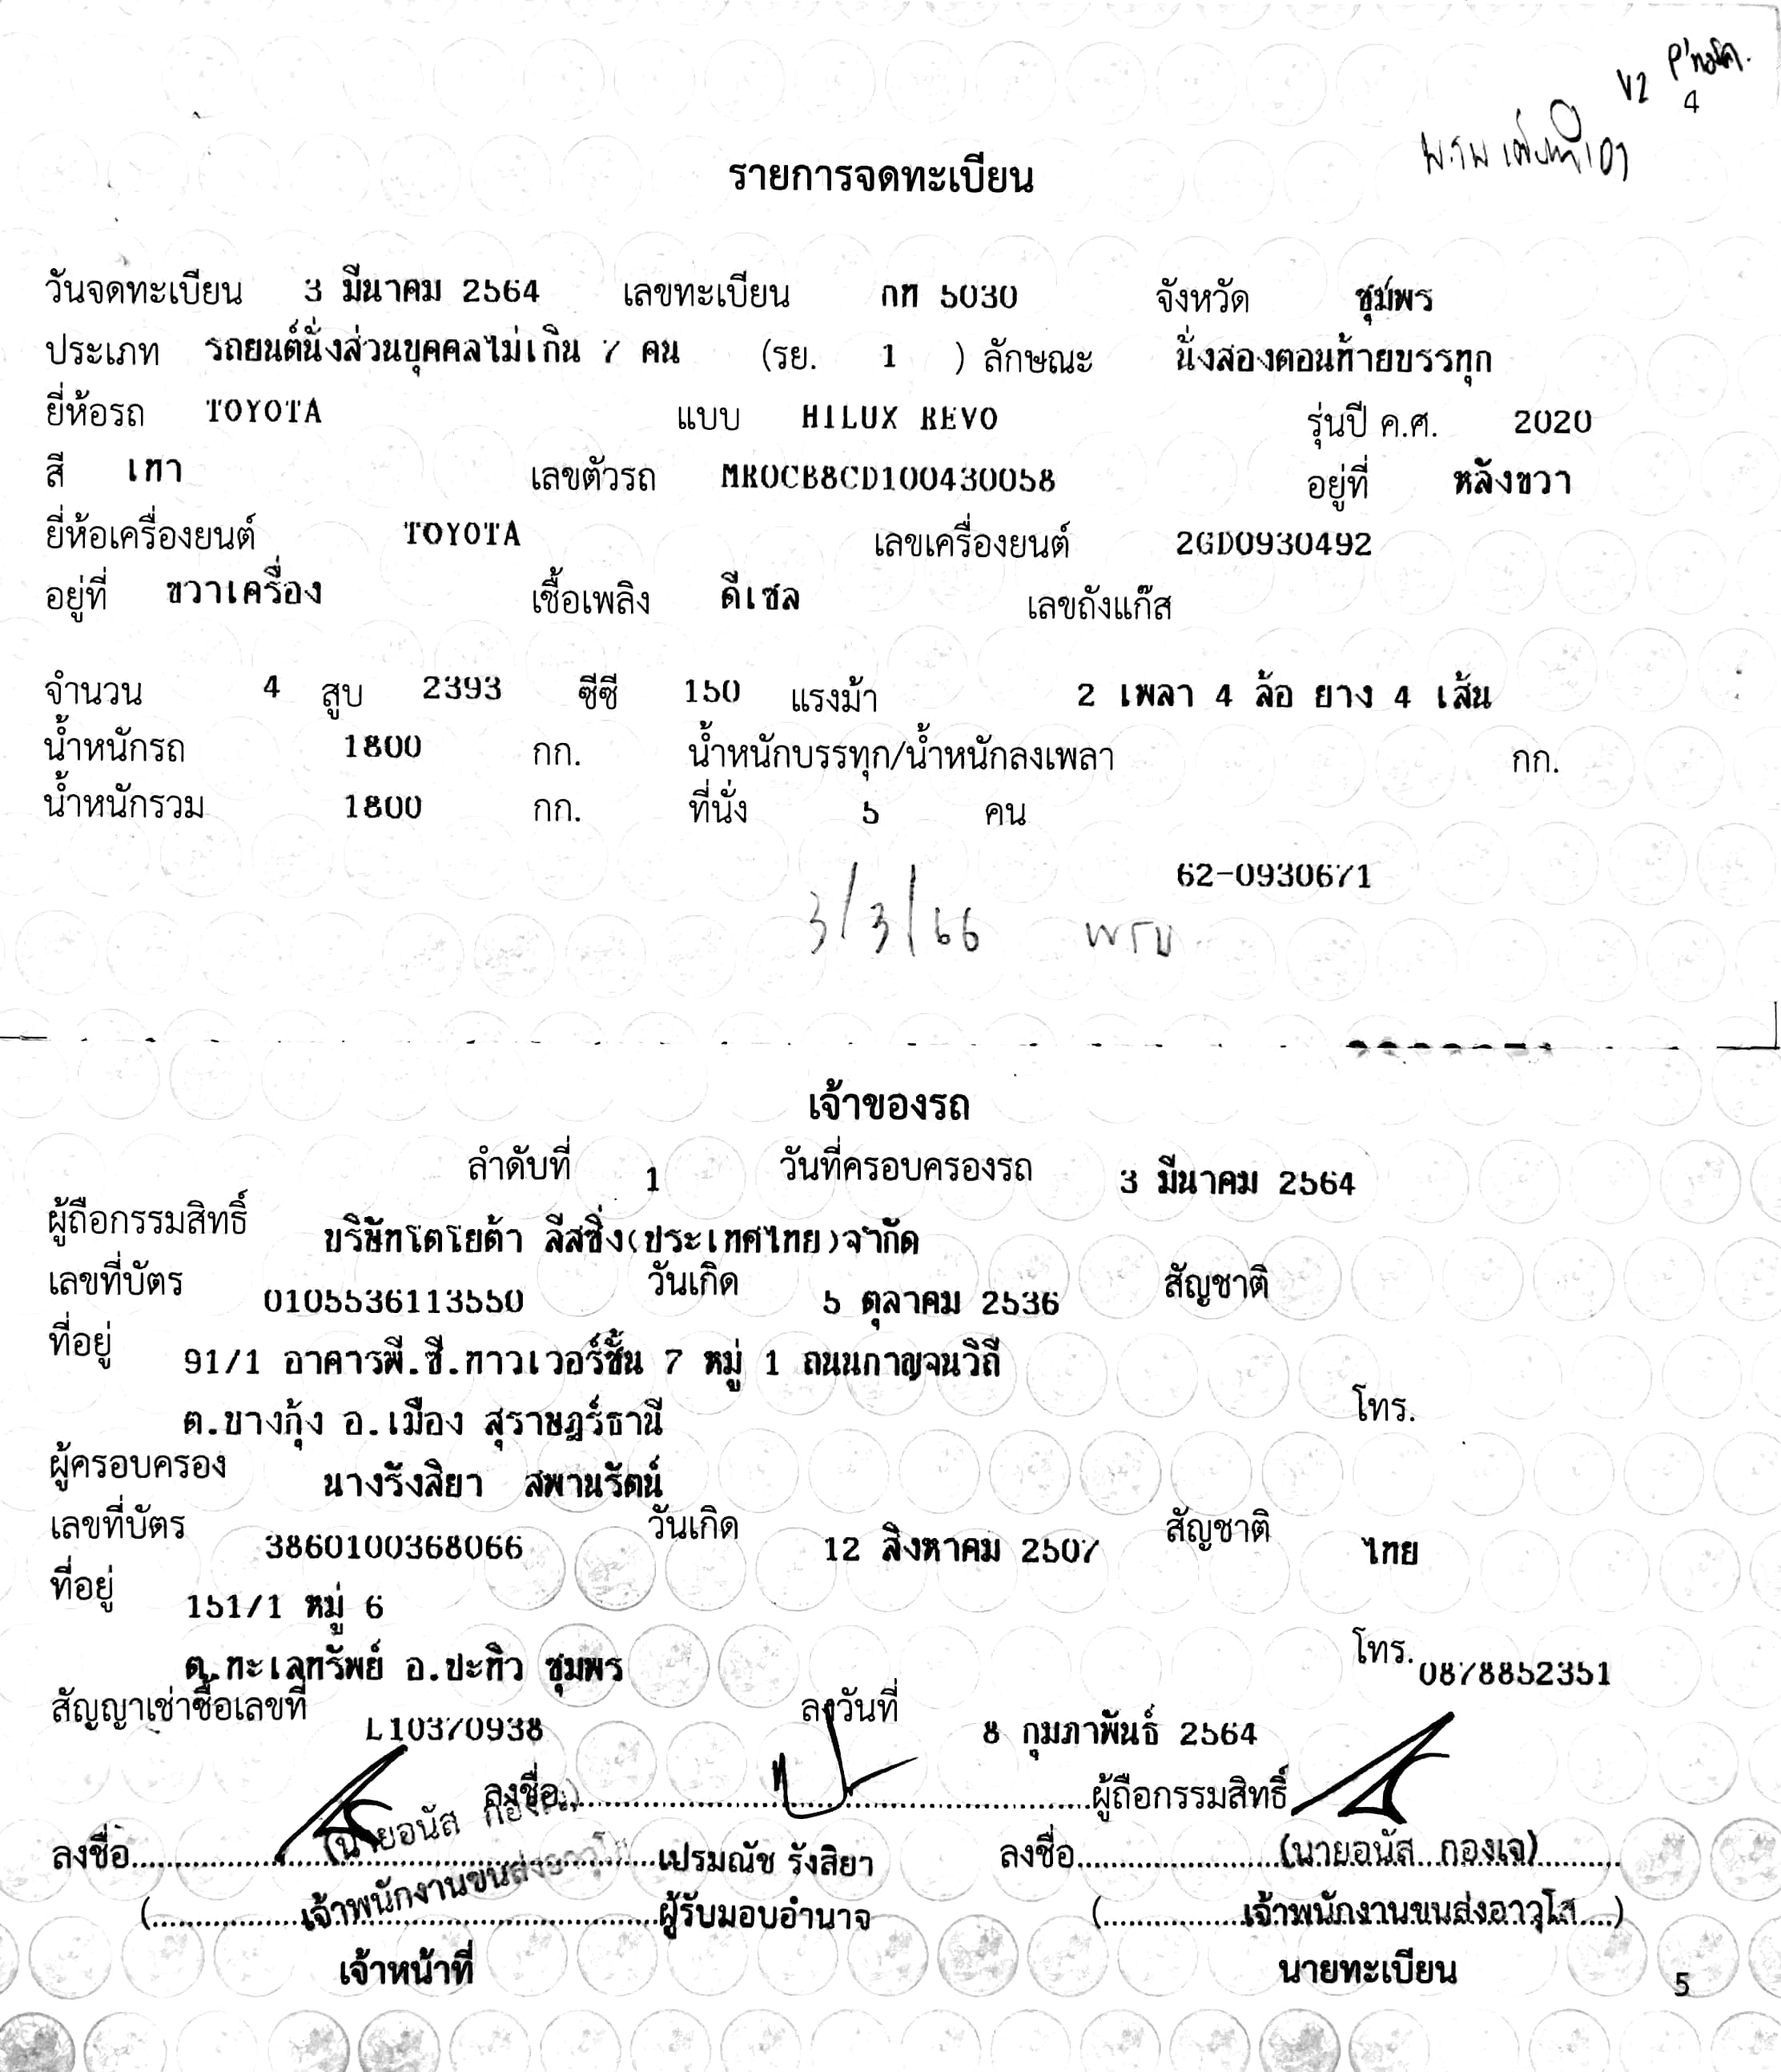 V2
4
รายการจดทะเบียน
วันจดทะเบียน 3 มีนาคม 2564 เลขทะเบียน กท 5030 จังหวัด ชุมพร
ประเภท รถยนต์นั่งส่วนบุคคลไม่เกิน 7 คน (รย. 1 ) ลักษณะ นั่งสองตอนท้ายบรรทุก
ยี่ห้อรถ TOYOTA แบบ HILUX REVO รุ่นปี ค.ศ. 2020
สี เทา เลขตัวรถ MR0CB8CD100430058 อยู่ที่ หลังขวา
ยี่ห้อเครื่องยนต์ TOYOTA เลขเครื่องยนต์ 2GD0930492
อยู่ที่ ขวาเครื่อง เชื้อเพลิง ดีเซล เลขถังแก๊ส
จำนวน 4 สูบ 2393 ซีซี 150 แรงม้า 2 เพลา 4 ล้อ ยาง 4 เส้น
น้ำหนักรถ 1800 กก. น้ำหนักบรรทุก/น้ำหนักลงเพลา กก.
น้ำหนักรวม 1800 กก. ที่นั่ง 5 คน
62-0930671
3/3/66 พรบ
เจ้าของรถ
ลำดับที่ 1 วันที่ครอบครองรถ 3 มีนาคม 2564
ผู้ถือกรรมสิทธิ์ บริษัทโตโยต้า ลีสซิ่ง(ประเทศไทย)จำกัด
เลขที่บัตร 0105536113550 วันเกิด 5 ตุลาคม 2536 สัญชาติ
ที่อยู่ 91/1 อาคารพี.ซี.ทาวเวอร์ชั้น 7 หมู่ 1 ถนนกาญจนวิถี
ต.บางกุ้ง อ.เมือง สุราษฎร์ธานี โทร.
ผู้ครอบครอง นางรังสิยา สพานรัตน์
เลขที่บัตร 3860100368066 วันเกิด 12 สิงหาคม 2507 สัญชาติ ไทย
ที่อยู่ 151/1 หมู่ 6
ต.ทะเลทรัพย์ อ.ปะทิว ชุมพร โทร. 0878852351
สัญญาเช่าซื้อเลขที่ L10370938 ลงวันที่ 8 กุมภาพันธ์ 2564
ลงชื่อ..........ผู้ถือกรรมสิทธิ์
(นายอนัส กองเจ)
ลงชื่อ..........เปรมณัช รังสิยา ลงชื่อ..........(นายอนัส กองเจ)..........
(..........เจ้าพนักงานขนส่งอาวุโส..........ผู้รับมอบอำนาจ (..........เจ้าพนักงานขนส่งอาวุโส....)
เจ้าหน้าที่ นายทะเบียน
5